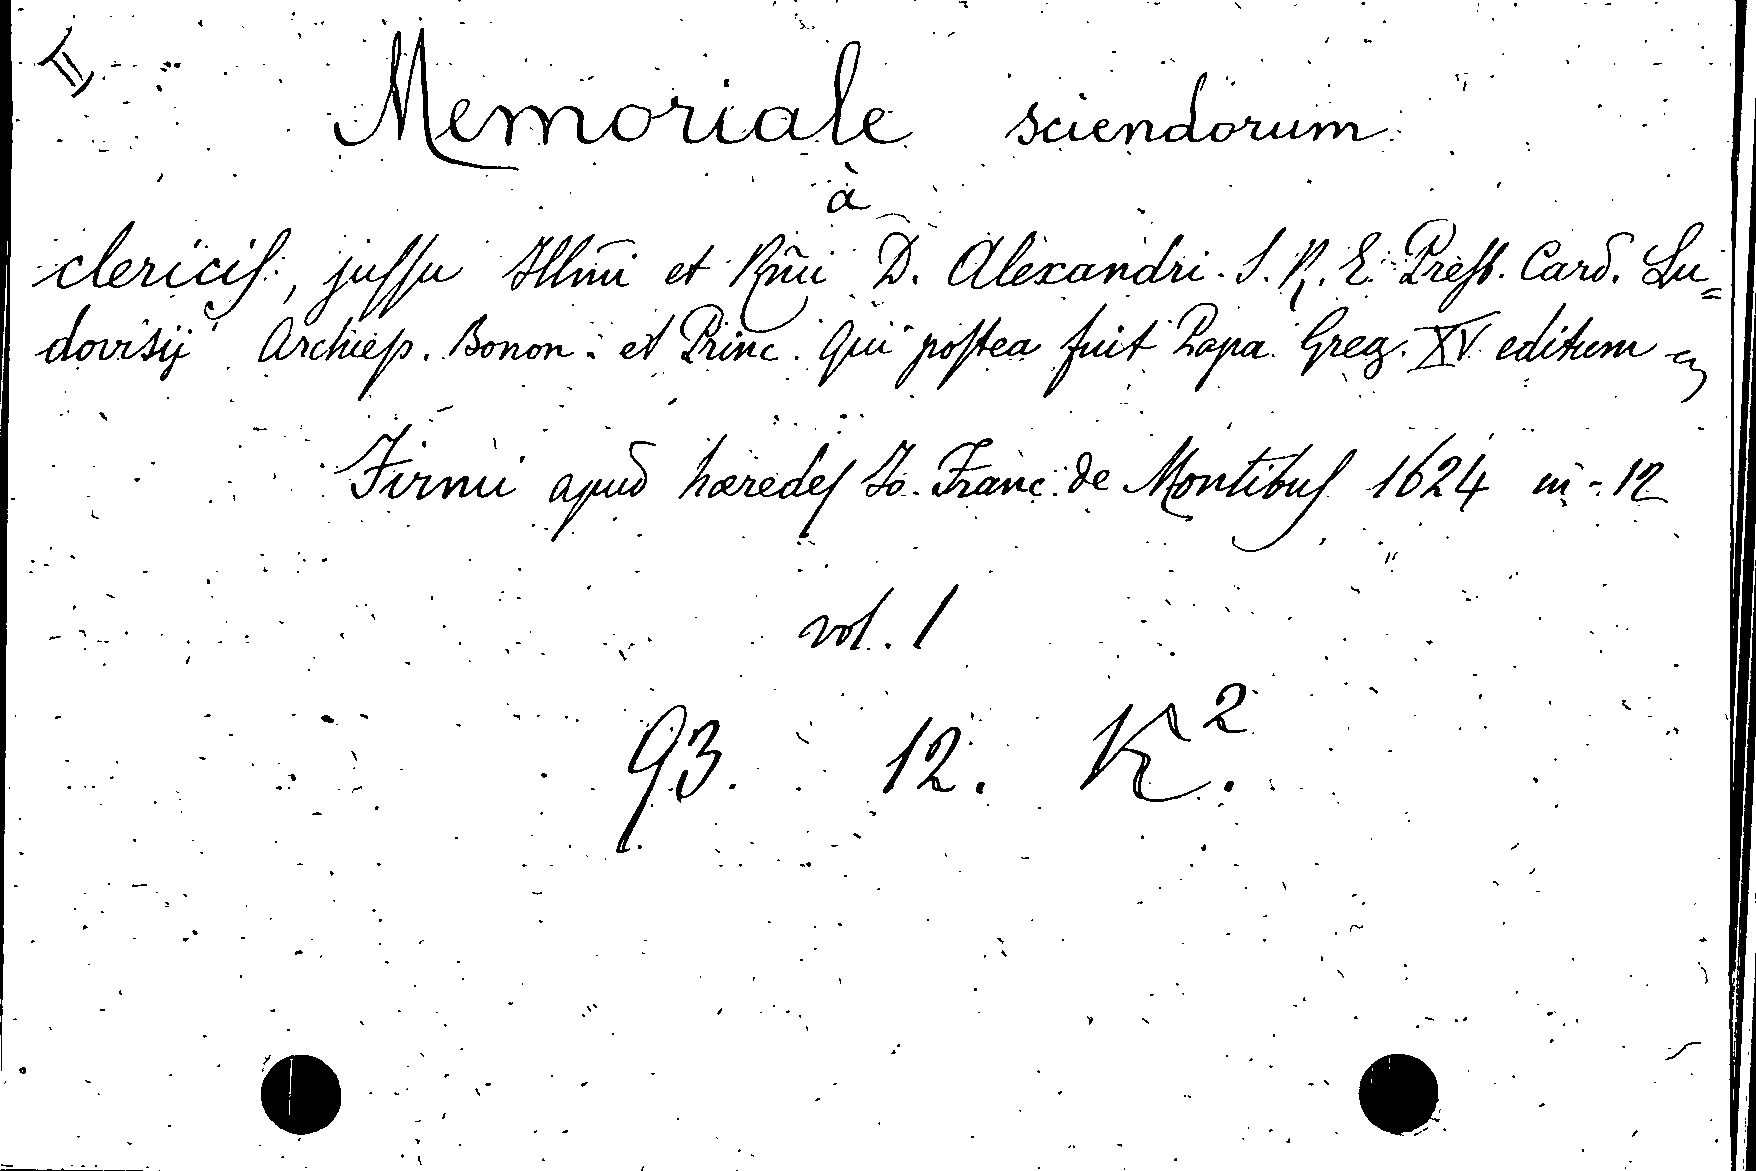 II
Memoriale sciendorum
à
clericis, jussu Illm̄i et Rm̄i D. Alexandri S. R. E. Presb. Card. Lu=
dovisij Archiep. Bonon. et Princ. qui postea fuit Papa Greg. XV editum
Firmi apud hæredes Jo. Franc. de Montibus 1624 in-12
vol. 1
93. 12. K².